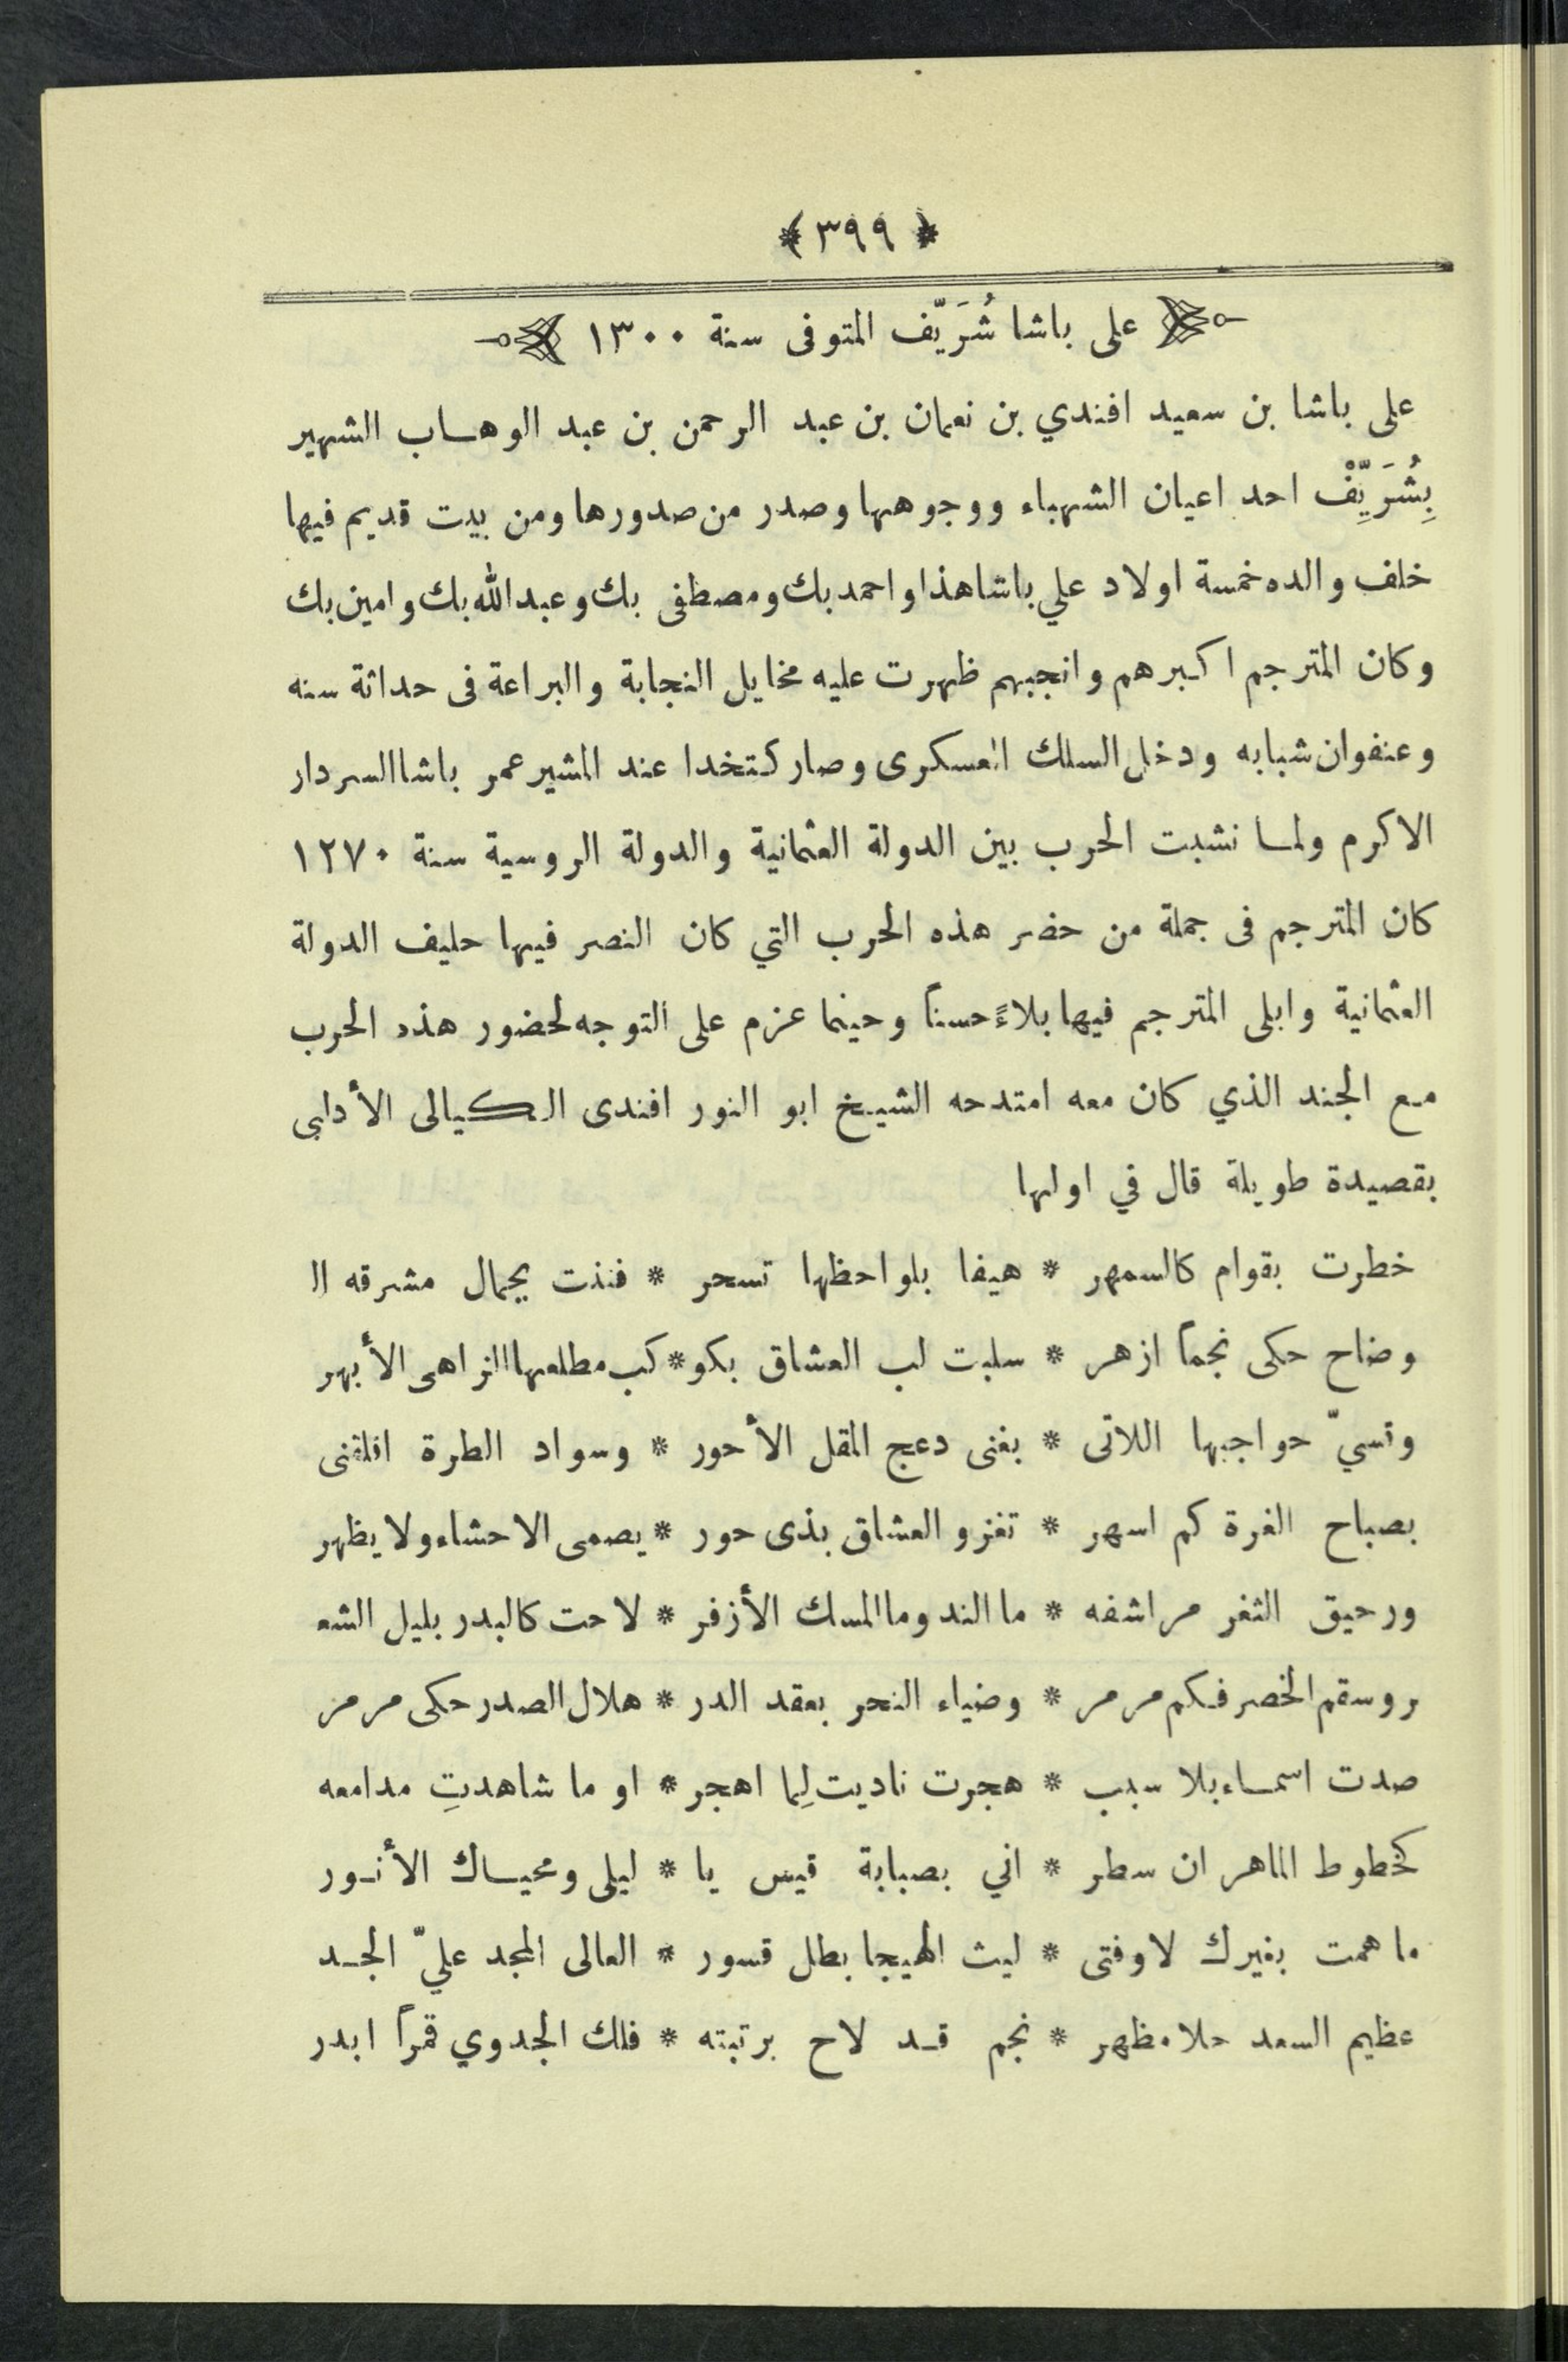 ﴿ ٣٩٩ ﴾
على باشا شُرَيّف المتوفى سنة ١٣٠٠
على باشا بن سعيد افندي بن نعمان بن عبد الرحمن بن عبد الوهاب الشهير
بِشُرَيِّفْ احد اعيان الشهباء ووجوهها وصدر من صدورها ومن بيت قديم فيها
خلف والده خمسة اولاد علي باشا هذا واحمد بك ومصطفى بك وعبد الله بك وامين بك
وكان المترجم اكبرهم وانجبهم ظهرت عليه مخايل النجابة والبراعة فى حداثة سنه
وعنفوان شبابه ودخل السلك العسكرى وصار كتخدا عند المشير عمر باشا السردار
الاكرم ولما نشبت الحرب بين الدولة العثمانية والدولة الروسية سنة ١٢٧٠
كان المترجم فى جملة من حضر هذه الحرب التي كان النصر فيها حليف الدولة
العثمانية وابلى المترجم فيها بلاءً حسناً وحينما عزم على التوجه لحضور هذه الحرب
مع الجند الذي كان معه امتدحه الشيخ ابو النور افندى الكيالى الأدابى
بقصيدة طويلة قال في اولها
خطرت بقوام كالسمهر * هيفا بلواحظها تسحر * فنذت بجمال مشرقه الـ
وضاح حكى نجماً ازهر * سلبت لب العشاق بكو * كب مطلعها الزاهى الأبهر
وقسيّ حواجبها اللاتى * بغنى دعج المقل الأحور * وسواد الطرة اقلقنى
بصباح الغرة كم اسهر * تغزو العشاق بذى حور * يصمى الاحشاء ولا يظهر
ورحيق الثغر مراشفه * ما الند وما المسك الأزفر * لاحت كالبدر بليل الشعـ
ر وسقم الخصر فكم مرمر * وضياء النحر بعقد الدر * هلال الصدر حكى مرمر
صدت اسماء بلا سبب * هجرت ناديت لِما اهجر * او ما شاهدتِ مدامعه
كخطوط الماهر ان سطر * اني بصبابة قيس يا * ليلى ومحياك الأنور
ما همت بغيرك لا وفتى * ليث الهيجا بطل قسور * العالى المجد عليّ الجد
عظيم السعد حلا مظهر * نجم قد لاح برتبته * فلك الجدوي قمراً ابدر